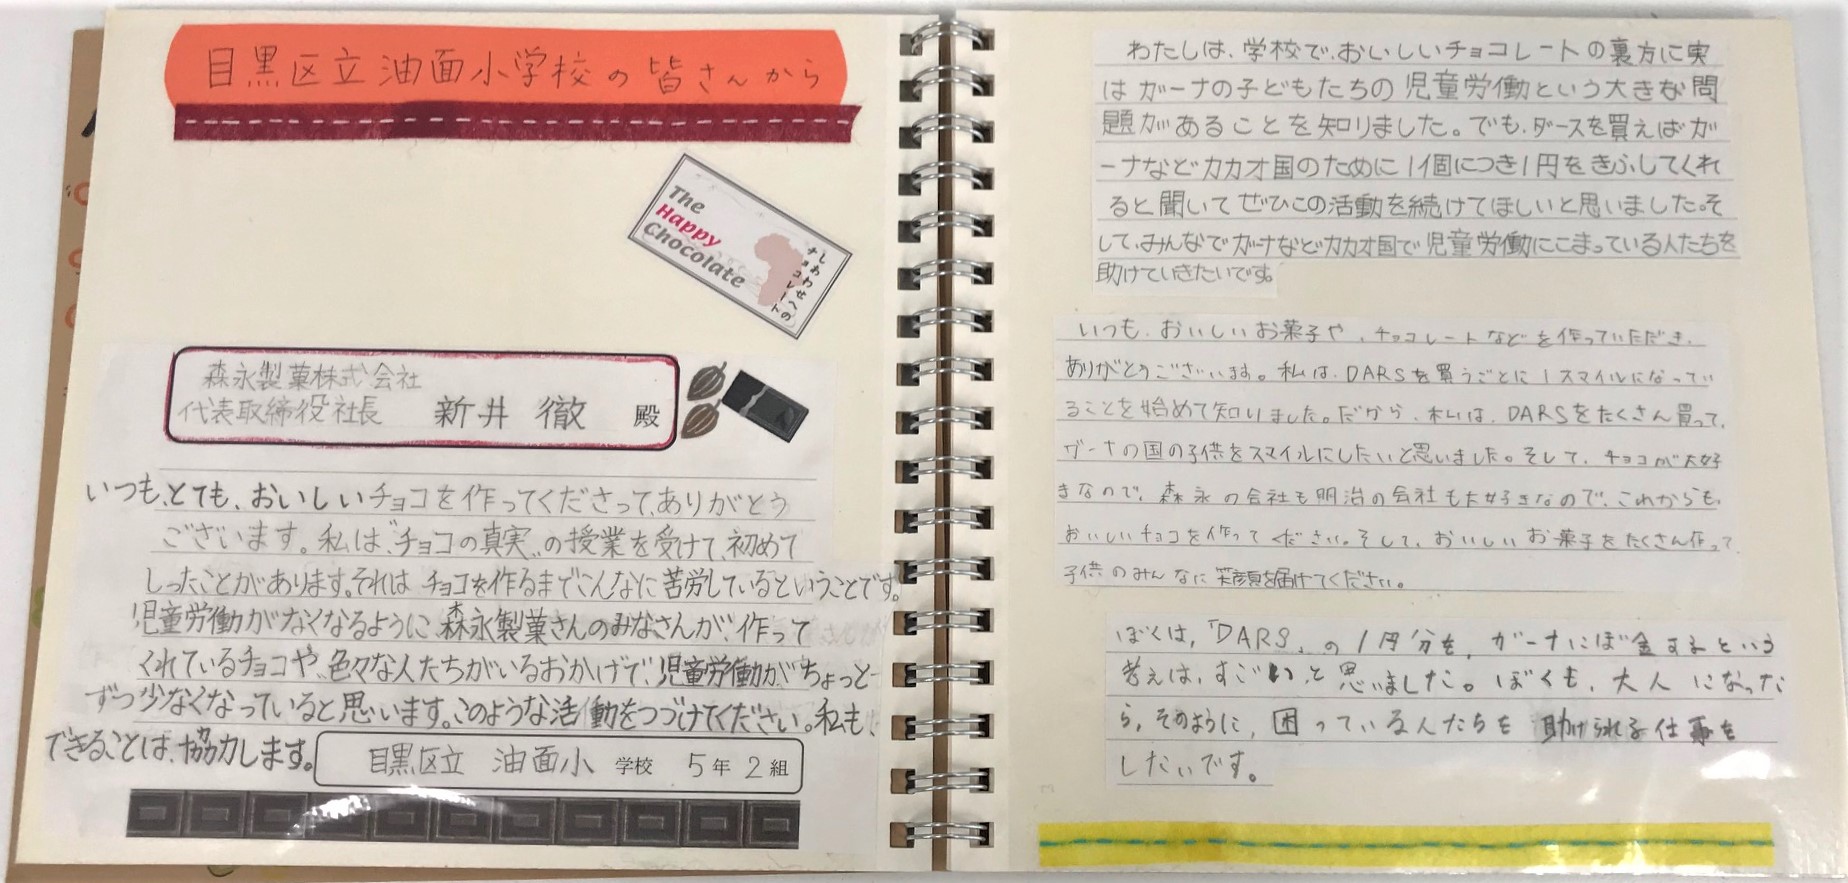 目黒区立油面小学校の皆さんから
The
Happy
Chocolate
しあわせへの
チョコレート
森永製菓株式会社
代表取締役社長 新井 徹 殿
いつも、とても、おいしいチョコを作ってくださって、ありがとう
ございます。私は、"チョコの真実"の授業を受けて、初めて
しったことがあります。それは チョコを作るまでこんなに苦労しているということです。
児童労働がなくなるように、森永製菓さんのみなさんが、作って
くれているチョコや、色々な人たちがいるおかげで、児童労働が、ちょっと
ずつ少なくなっていると思います。このような活動をつづけてください。私も、
できることは、協力します。
目黒区立 油面小 学校 5年 2組
わたしは、学校で、おいしいチョコレートの裏方に実
はガーナの子どもたちの児童労働という大きな問
題があることを知りました。でも、ダースを買えばガ
ーナなどカカオ国のために1個につき1円をきふしてくれ
ると聞いてぜひこの活動を続けてほしいと思いました。そ
して、みんなでガーナなどカカオ国で児童労働にこまっている人たちを
助けていきたいです。
いつも、おいしいお菓子や、チョコレートなどを作っていただき、
ありがとうございます。私は、DARSを買うごとに1スマイルになってい
ることを始めて知りました。だから、私は、DARSをたくさん買って、
ガーナの国の子供をスマイルにしたいと思いました。そして、チョコが大好
きなので、森永の会社も明治の会社も大好きなので、これからも、
おいしいチョコを作ってください。そして、おいしいお菓子をたくさん作って、
子供のみんなに笑顔を届けてください。
ぼくは、「DARS」の1円分を、ガーナにぼ金するという
考えは、すごいと思いました。ぼくも、大人になった
ら、そのように、困っている人たちを助けられる仕事を
したいです。